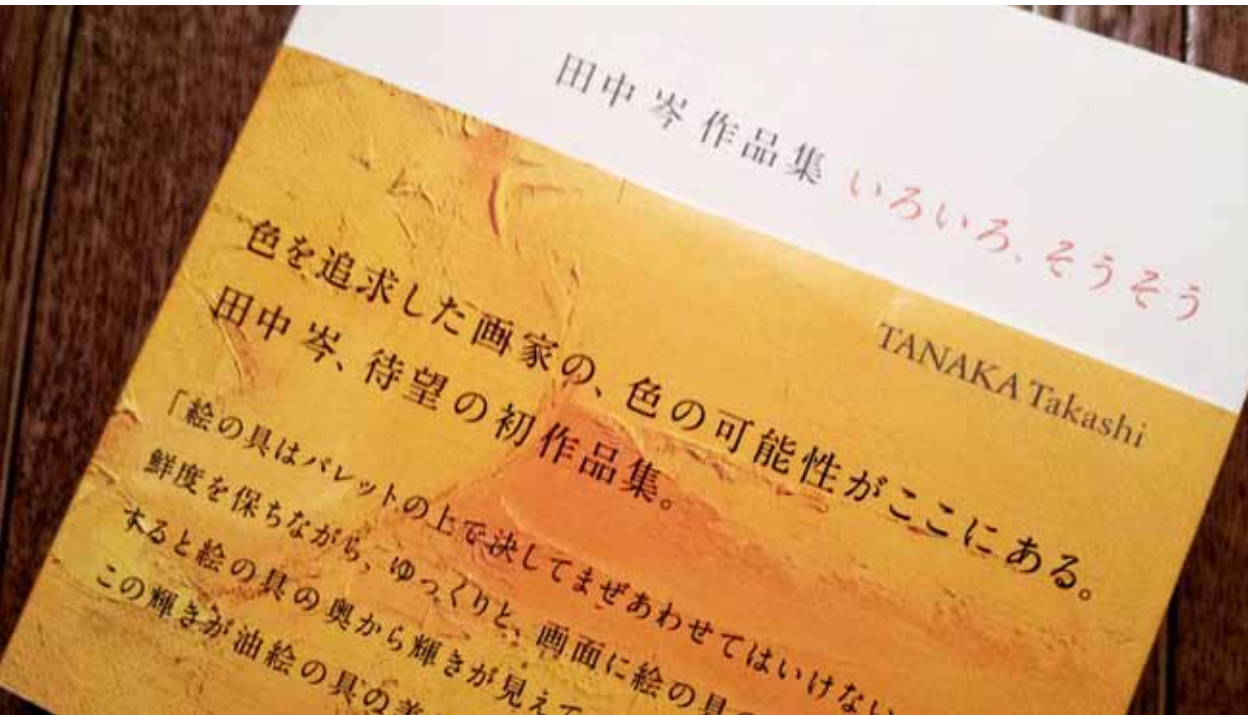 田中 岑 作品集 いろいろ、そうそう
TANAKA Takashi
色を追求した画家の、色の可能性がここにある。
田中 岑、待望の初作品集。
「絵の具はパレットの上で決してまぜあわせてはいけない
鮮度を保ちながら、ゆっくりと、画面に絵の具の
すると絵の具の奥から輝きが見えて
この輝きが油絵の具の美